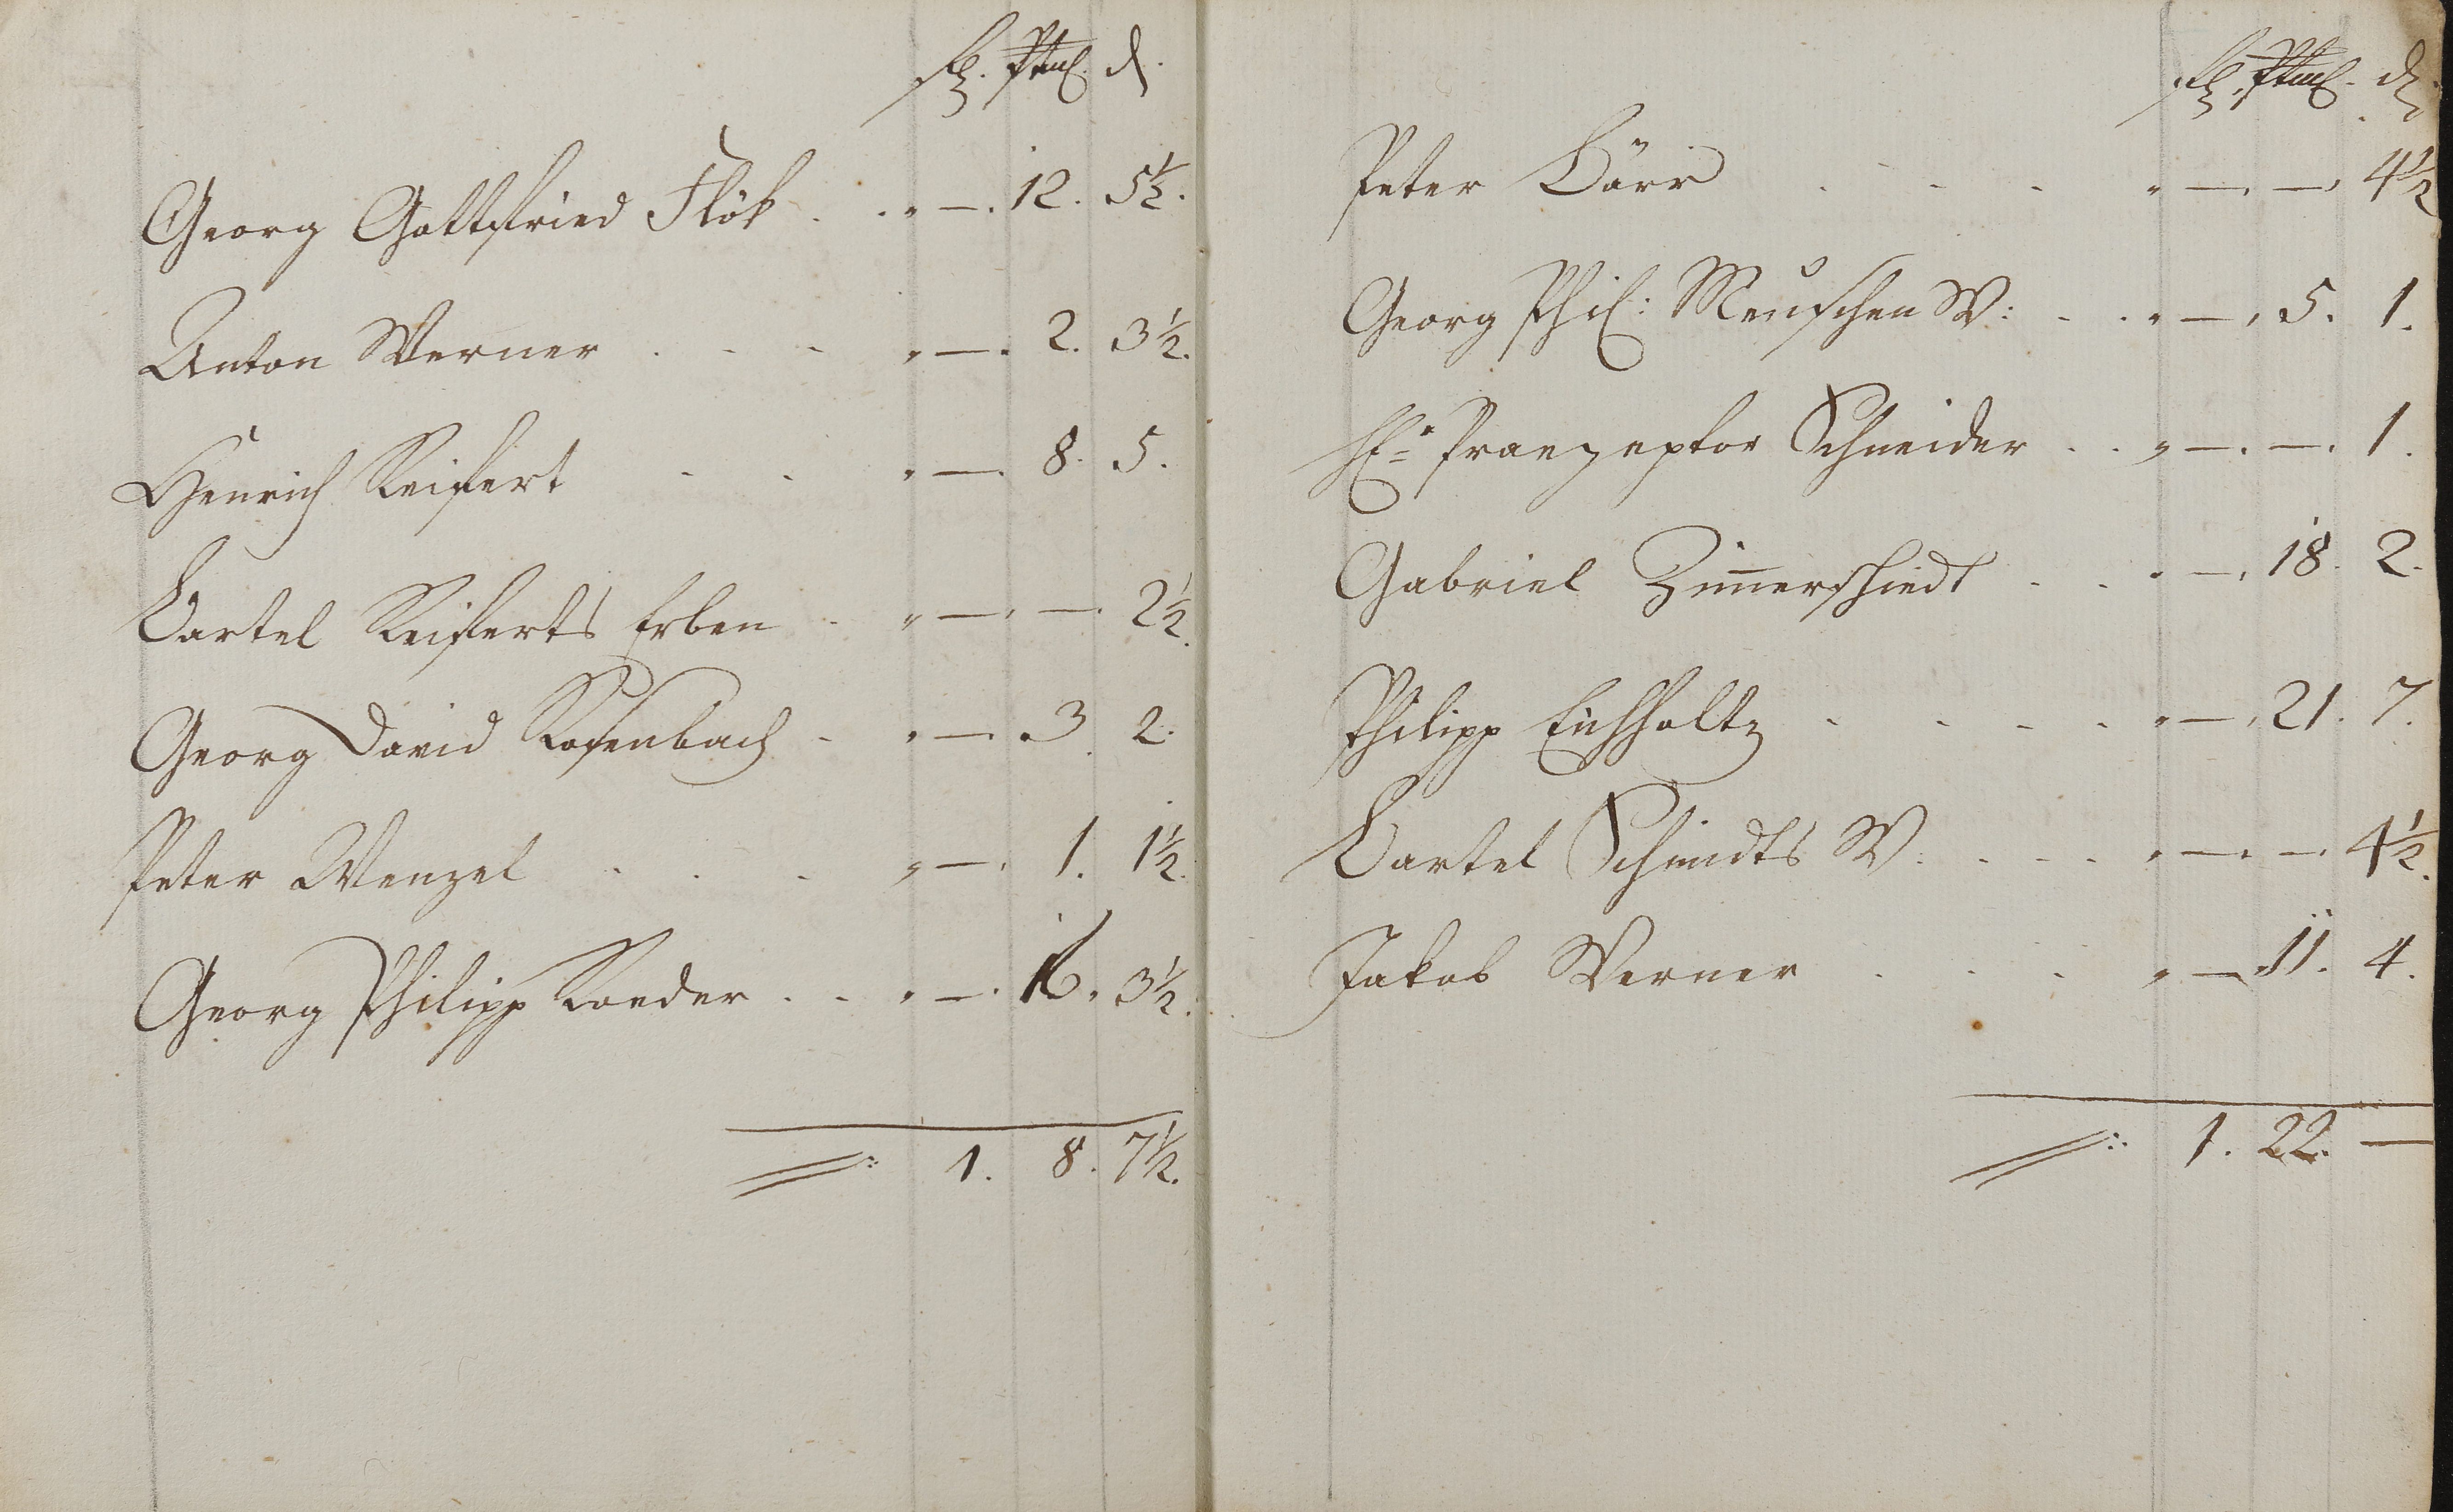 fl. Ptml. d.
Georg Gottfried Flök . . „ — . 12. 5½.
Anton Werner . - - „ — . 2. 3½.
Henrich Reifert - - „ — . 8. 5.
Bartel Reiferts Erben - „ — . — . 2½.
Georg David Rosenbach - „ — . 3. 2.
Peter Wenzel . . - „ — . 1. 1½.
Georg Philipp Roeder . . „ — . 16. 3½.
1. 8. 7½.
fl. Ptml. d.
Peter Bärr . - - „ — . — . 4½
Georg Phil: Meuschen W: - . „ — . 5. 1.
H. Praezeptor Schneider . . „ — . — . 1.
Gabriel Zimerschiedt . . „ — . 18. 2.
Philipp Eichholtz - - - - „ — . 21. 7.
Bartel Schmidts W: - - - „ — . — . 4½.
Jakob Werner . . - „ — . 11. 4.
1. 22. —